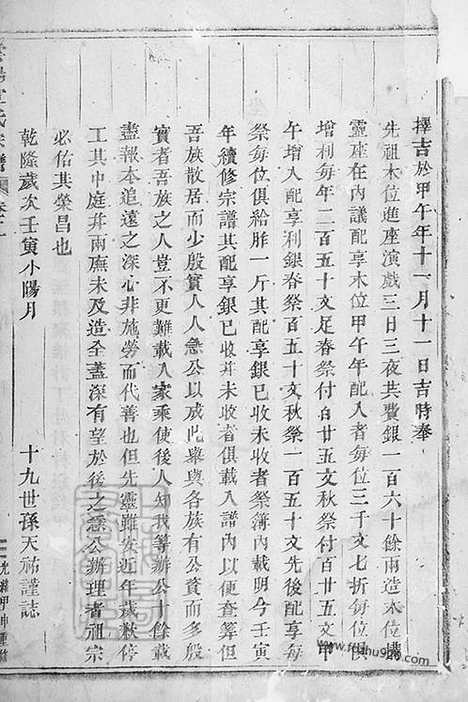 擇吉於甲午年十一月十一日吉時奉
先祖木位進座演戲三日三夜共費銀一百六十餘兩造木位攢
靈座在內議配享木位甲午年配入者每位三千文七折每位俱
增利每年二百五十文足春祭付百廿五文秋祭付百廿五文甲
午增入配享利銀春祭一百五十文秋祭一百五十文先後每
祭每位俱給胙一斤其配享銀已收未收者祭簿內載明今壬寅
年續修宗譜其配享銀已收并未收者俱載入譜內以便查算但
吾族散居少殷實人人急公以成此舉與各族有公資而多殷
實者吾族之人豈不更難載入家乘使後人知我等辦公十餘載
盡報本追遠之深心非施勞而代善也但先靈雖安近年歲歉停
工其中庭并兩廡未及造全盡深有望於後之急公辦理者祖宗
必佑其榮昌也
乾隆歲次壬寅小陽月
十九世孫天祐謹誌
氏宗譜